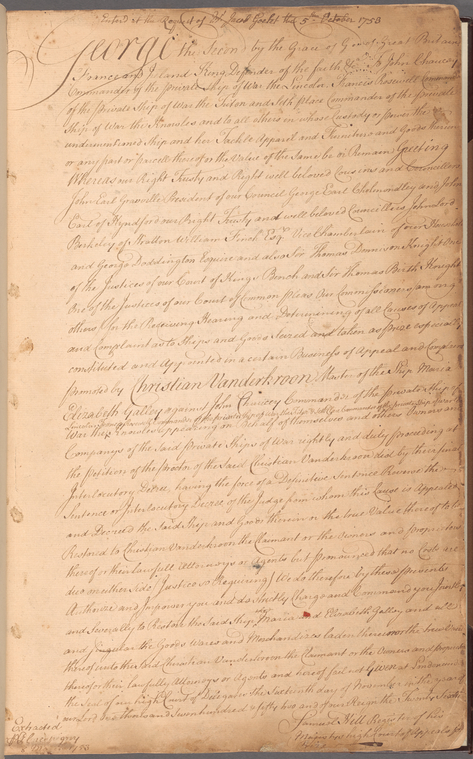 Entered at the Request of Mr Jacob Goelet the 5th October 1753
George the Second by the Grace of God of Great Britain
France and Ireland King Defender of the faith &c To John Chancey
Commander of the private Ship of War the Lincoln Francis Rosewell
of the private Ship of War the Triton and Seth place Commander of the private
Ship of War the Knowles and to all others in whose Custody or power the
undermentioned Ship and her Tackle Apparel and Furniture and Goods therein
or any part or parcell thereof or the Value of the Same be or Remain Greeting
Whereas our Right Trusty and Right well beloved Cousins and Councillors
John Earl Granville President of our Council George Earl Cholmondley and John
Earl of Hyndford our Right Trusty and well beloved Councillors John Lord
Berkeley of Stratton William Finch Esqr Vice Chamberlain of our Household
and George Doddington Esquire and also Sir Thomas Dennison Knight One
of the Justices of our Court of Kings Bench and Sir Thomas Birch Knight
One of the Justices of our Court of Common pleas Our Commissioners among
others for the Receiving Hearing and Determining of all Causes of Appeal
and Complaint as to Ships and Goods Seized and taken as prize especially
constituted and Appointed in a certain Business of Appeal and Complaint
promoted by Christian Vanderkroon Master of the Ship Maria
Elizabeth Galley against John Chancey Commander of the private Ship of
War Knowles appearing on behalf of themselves and others Owners and
Companys of the Said private Ships of War rightly and duly proceeding at
the petition of the proctor of the Said Christian Vanderkroon did by their final
Interlocutory Decree having the force of a Definitive Sentence Reverse the
Sentence or Interlocutory Decree of the Judge from whom this Cause is Appealed
and Decreed the Said Ship and Goods therein or the true Value thereof to be
Restored to Christian Vanderkroon the Claimant or the Owners and proprietors
thereof or their lawfull Attorneys or Agents but pronounced that no Costs are
due on either Side (Justice so Requiring) We do therefore by these presents
Authorize and Impower you and do strictly Charge and Command you Jointly
and Severally to Restore the Said Ship Maria and Elizabeth Galley and all
and Singular the Goods Wares and Merchandizes laden therein or the true Value
thereof unto the Said Christian Vanderkroon the Claimant or the Owners and proprietors
thereof or their lawfull Attorneys or Agents and hereof fail not Given at London under
the Seal of our high Court of Delegates the Sixteenth day of November in the year of
our Lord one thousand Seven hundred and fifty two and of our Reign the Twenty Sixth
Samuel Hill Register of his
Majesties high Court of Appeals for
Extracted
1753